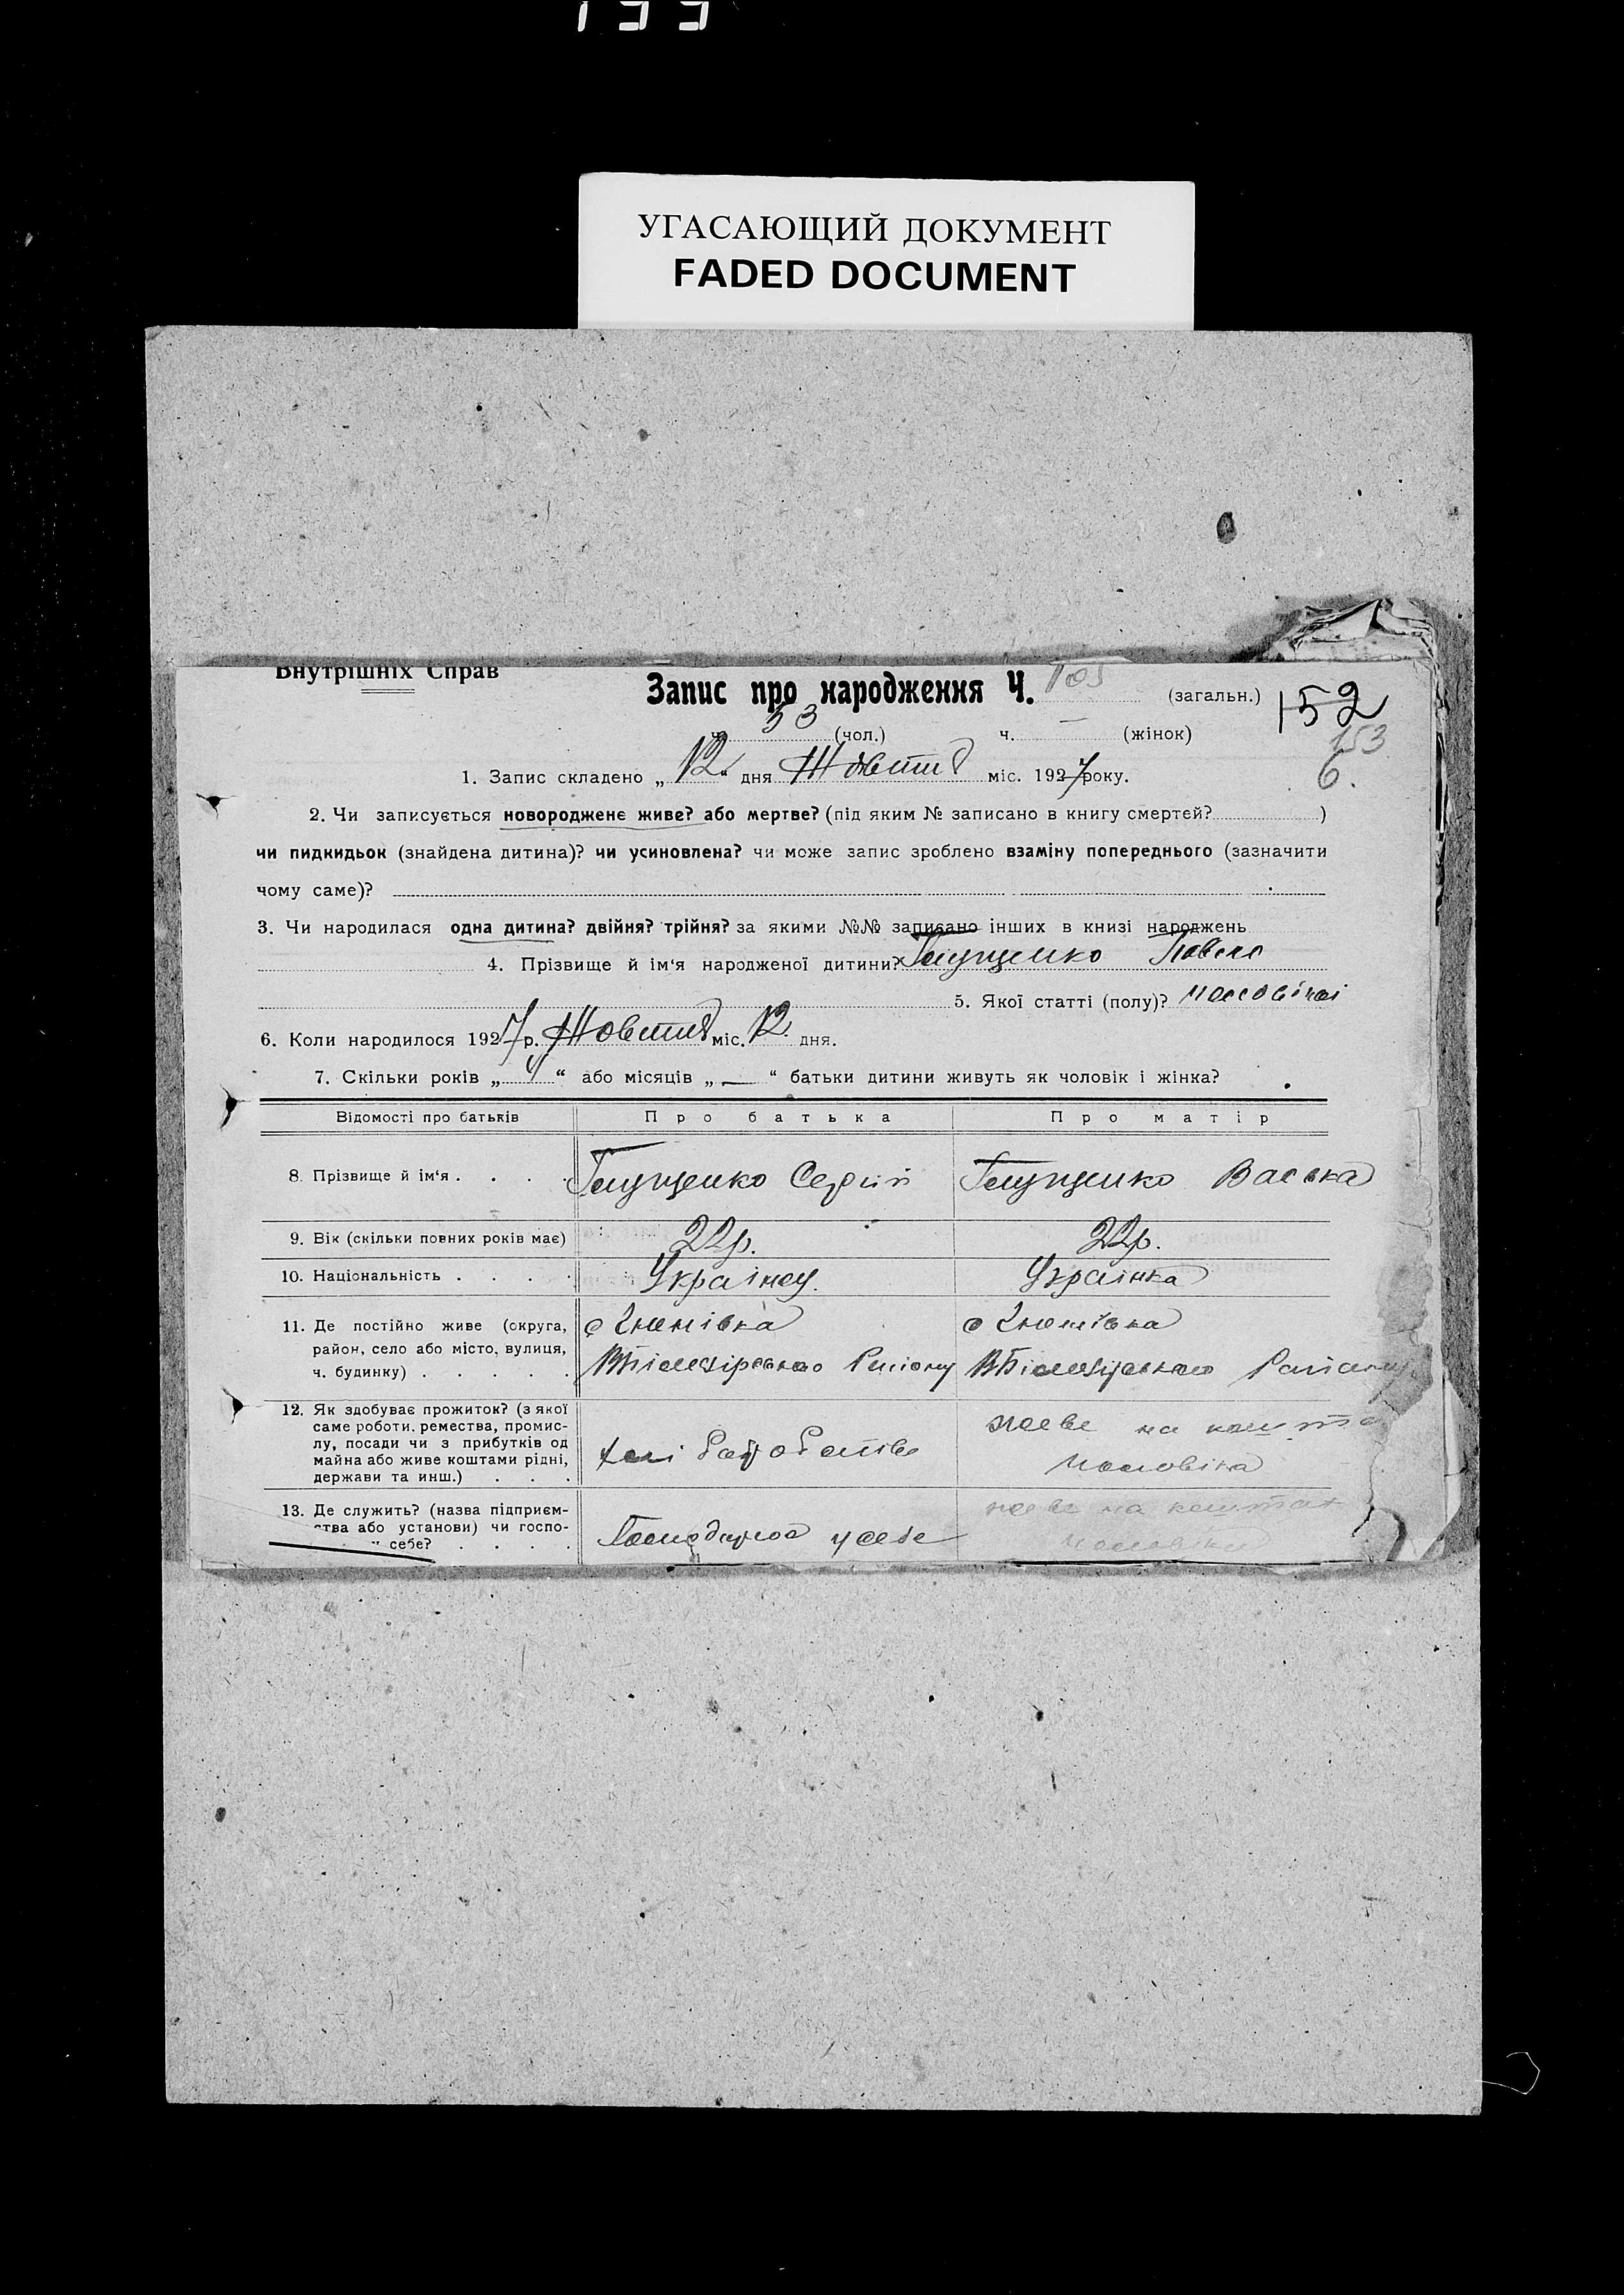 УГАСАЮЩИЙ ДОКУМЕНТ
FADED DOCUMENT
Внутрішніх Справ
Запис про народження Ч. (загальн.) 152
ч. 53 (чол.) ч. — (жінок) 153
1. Запис складено „12“ дня Жовтня міс. 1927 року. 6.
2. Чи записується новороджене живе? або мертве? (під яким № записано в книгу смертей? )
чи пидкидьок (знайдена дитина)? чи усиновлена? чи може запис зроблено взаміну попереднього (зазначити
чому саме)?
3. Чи народилася одна дитина? двійня? трійня? за якими №№ записано інших в книзі народжень
4. Прізвище й ім‘я народженої дитини? Глущенко Павело
5. Якої статті (полу)?
6. Коли народилося 1927 р. Жовтня міс. 12 дня.
7. Скільки років „4“ або місяців „—“ батьки дитини живуть як чоловік і жінка?
Відомості про батьків Про батька Про матір
8. Прізвище й ім‘я . . . . Глущенко Сергій Глущенко Васька
9. Вік (скільки повних років має) 22р. 22р.
10. Національність . . . . Українец. Українка
11. Де постійно живе (округа,
район, село або місто, вулиця,
ч. будинку) . . . . .
12. Як здобуває прожиток? (з якої
саме роботи, ремества, промис-
лу, посади чи з прибутків од
майна або живе коштами рідні,
держави та инш.) . . .
живе на кошта
чоловіка
13. Де служить? (назва підприєм-
ства або установи) чи госпо-
себе? . . . .
Господарює у себе
живе на коштах
чоловіка